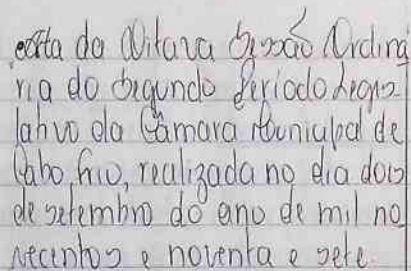 Ata da Oitava Sessão Ordiná
ria do Segundo Período Legis
lativo da Câmara Municipal de
Cabo Frio, realizada no dia dois
de setembro do ano de mil no
vecentos e noventa e sete.